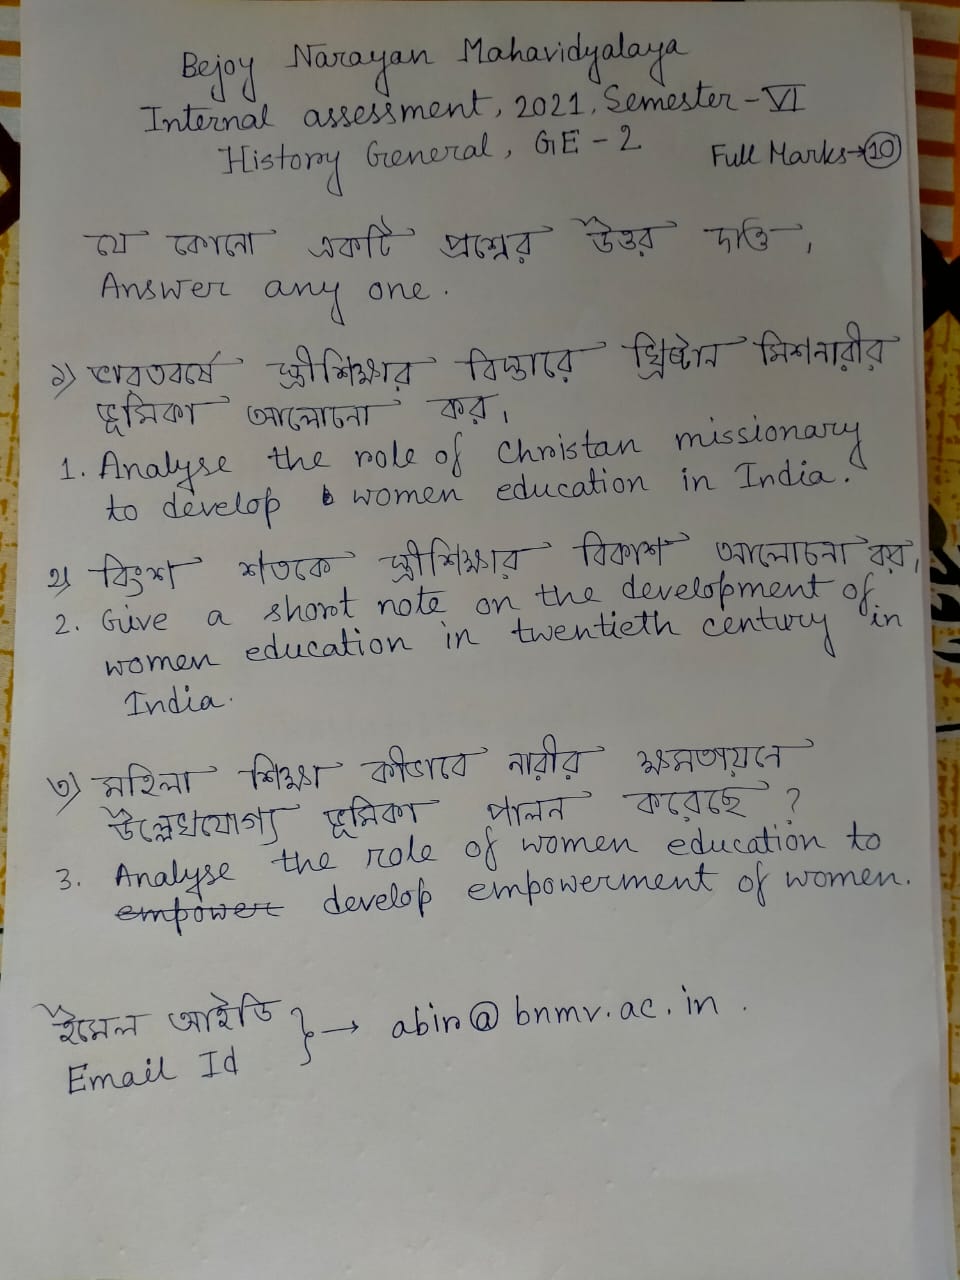 Bejoy Narayan Mahavidyalaya
Internal assessment, 2021, Semester - VI
History General, GE - 2
Full Marks→10
যে কোনো একটি প্রশ্নের উত্তর দাও।
Answer any one.
১) ভারতবর্ষে স্ত্রীশিক্ষার বিস্তারে খ্রিষ্টান মিশনারীর
ভূমিকা আলোচনা কর।
1. Analyse the role of Christan missionary
to develop women education in India.
২) বিংশ শতকে স্ত্রীশিক্ষার বিকাশ আলোচনা কর।
2. Give a short note on the development of
women education in twentieth century in
India.
৩) মহিলা শিক্ষা কীভাবে নারীর ক্ষমতায়নে
উল্লেখযোগ্য ভূমিকা পালন করেছে?
3. Analyse the role of women education to
empower develop empowerment of women.
ইমেল আইডি
Email Id } → abin@bnmv.ac.in.